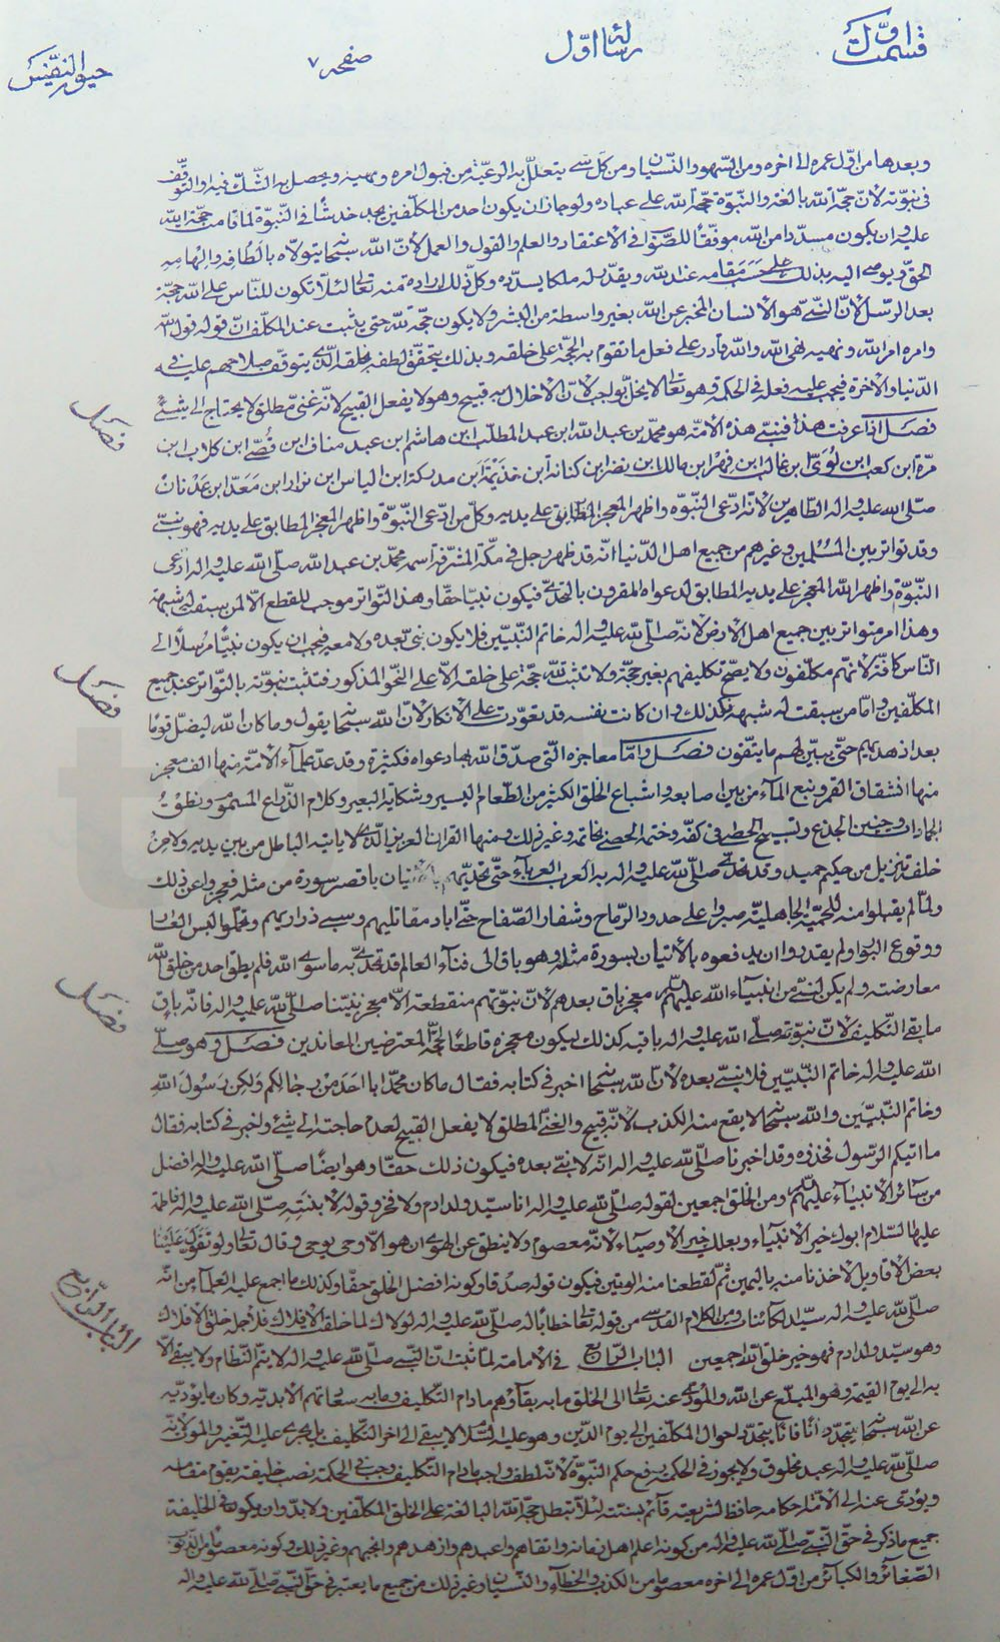 قسمت اول
رسالۀ اول
صفحه ٧
حيوة النفس
وبعدها من اوّل عمره الى اخره ومن السّهو والنّسيان ومن كل شيء يتعلّل به الرعيّة من قبول امره ونهيه ويحصل به الشّك فيه او التوقّف
فى نبوّته لانّ حجّة الله بالغة والنّبوّة حجّة الله على عباده ولو جاز ان يكون احد من المكلّفين يجد خدشًا فى النّبوّة لما قامت حجّة الله
عليه وان يكون مسدّدا من الله موفّقًا للصّواب فى الاعتقاد والعلم والقول والعمل لانّ الله سبحانه يتولّاه بالطافه والهامه
الحقّ ويوحى اليه بذلك على حسب مقامه عند الله ويقدّر له ملكا يسدّده وكلّ ذلك ارادة منه تعالى لئلّا تكون للنّاس على الله حجّة
بعد الرّسل لانّ النّبىّ هو الانسان المخبر عن الله بغير واسطة من البشر ولا يكون حجّة لله حتى يثبت عند المكلّف انّ قوله قول الله
وامره امر الله ونهيه نهى الله والله قادر على فعل ما تقوم به الحجّة على خلقه وبذلك يتحقّق لطفه بخلقه الّذى يتوقف صلاحهم عليه فى
الدّنيا والاخرة فيجب عليه فعله فى الحكمة وهو تعالى لا يخلّ بواجب لانّ الاخلال به قبيح وهو لا يفعل القبيح لانّه غنىّ مطلق لا يحتاج الى شىء
فصل اذا عرفت هذا فنبىّ هذه الامّة هو محمّد بن عبد الله ابن عبد المطلّب ابن هاشم ابن عبد مناف ابن قُصّى ابن كلاب ابن
مرّة ابن كعب ابن لُوَىّ ابن غالب ابن فهر ابن مالك ابن نضر ابن كنانة ابن خذيمَة ابن مدركة ابن الياس ابن نزار ابن مَعَدّ ابن عَدْنان
صلّى الله عليه واله الطّاهرين لانّه ادّعى النّبوّة واظهر المعجز المطابق على يديه وكلّ من ادّعى النّبوّة واظهر المعجز المطابق على يديه فهو نبىّ
وقد تواتر بين المُسْلمين وغيرهم من جميع اهل الدّنيا انّه قد ظهر رجل فى مكّة المشرّفة اسمه محمّد بن عبد الله صلّى الله عليه واله ادعى
النّبوّة واظهر الله المعجز على يديه المطابق لدعواه المقرون بالتحدّى فيكون نبيّا حقّا وهذا التّواتر موجب للقطع الّا لمن سبقت له شبهة
وهذا امر متواتر بين جميع اهل الارض لانّه صلّى الله عليه واله خاتم النّبيّين فلا يكون نبىّ بعده ولا معه فيجب ان يكون نبيًّا مُرسلًا الى
النّاس كافّة لانّهم مكلّفون ولا يصحّ تكليفهم بغير حجّة ولا تثبت لله حجّة على خلقه الّا على النّحو المذكور فتثبت نبوّته بالتّواتر عند جميع
المكلّفين وامّا من سبقت له شبهة فكذلك وان كانت نفسه قد تعوّدت على الانكار لانّ الله سبحانه يقول وما كان الله ليضلّ قومًا
بعد اذ هديهم حتّى يبيّن لهم ما يتّقون فصل وامّا معاجزه الّتى صدّق الله بها دعواه فكثيرة وقد عدّ علمآء الامّة منها الف معجز
منها انشقاق القمر ونبع المآء من بين اصابعه واشباع الخلق الكثير من الطّعام اليسير وشكاية البعير وكلام الذّراع المسموم ونطق
الجمادات وحنين الجذع وتسبيح الحصى فى كفّه وختمه الحصى بخاتمه وغير ذلك ومنها القران العزيز الّذى لا ياتيه الباطل من بين يديه ولا من
خلفه تنزيل من حكيم حميد وقد تحدّى صلّى الله عليه واله به العرب العربآء حتّى تحدّيهم بالاتيان باقصر سورة من مثله فعجزوا عن ذلك
ولمّا لم يقبلوا منه للحميّة الجاهليّة صبروا على حدود الرّماح وشفار الصّفاح حتّى اباد مقاتليهم وسبى ذراريهم وتحمّلوا لبس العار
ووقوع البوار ولم يقدروا ان يدفعوه بالاتيان بسورة مثله وهو باق الى فنآء العالم قد تحدّى به ما سوى الله فلم يطق احد من خلق الله
معارضته ولم يكن لنبىّ من انبيآء الله عليهم السّلام معجز باق بعدهم لانّ نبوّتهم منقطعة الّا معجز نبيّنا صلّى الله عليه واله فانّه باق
ما بقى التّكليف لانّ نبوّته صلّى الله عليه واله باقية كذلك ليكون معجزه قاطعًا لحجّة المعترضين المعاندين فصل وهو صلّى
الله عليه واله خاتم النّبيّين فلا نبىّ بعده لانّ الله سبحانه اخبر فى كتابه فقال ما كان محمّد ابا احَد من رجالكم ولكن رَسُولَ الله
وخاتم النّبيّين والله سبحانه لا يقع منه الكذب لانّه قبيح والغنىّ المطلق لا يفعل القبيح لعدم حاجته الى شىء واخبر فى كتابه فقال
ما اتيكم الرّسول فخذوه وقد اخبرنا صلّى الله عليه واله انّه لا نبىّ بعده فيكون ذلك حقّا وهو ايضًا صلّى الله عليه واله افضل
من سائر الانبيآء عليهم السّلم ومن الخلق اجمعين لقوله صلّى الله عليه واله انا سيّد ولد ادم ولا فخر وقوله لابنته صلّى الله عليه واله فاطمة
عليها السّلام ابوك خير الانبيآء وبعلك خير الاوصيآء لانّه معصوم ولا ينطق عن الهوى ان هو الّا وحى يوحى وقال تعالى ولو تقوّل علينا
بعض الاقاويل لاخذنا منه باليمين ثمّ لقطعنا منه الوتين فيكون قوله صدقا وكونه افضل الخلق حقّا وكذلك ما اجمع عليه العلمآء من انّه
صلّى الله عليه واله سيّد الكائنات ومن الكلام القدسى من قوله تعالى خطابًا له صلّى الله عليه واله لولاك لما خلقت الافلاك فلاجله خلق الافلاك
وهو سيّد ولد ادم فهو خير خلق الله اجمعين الباب الرّابع فى الامامة لمّا ثبت انّ النّبى صلّى الله عليه واله لا يتمّ النّظام ولا يبقى الّا
به الى يوم القيمة وهو المبلّغ عن الله والمؤدّى عنه تعالى الى الخلق ما به بقآؤهم ما دام التّكليف وما به سعادتهم الابديّة وكان ما يؤدّيه
عن الله سبحانه يتجدّد انًا فانًا بتجدّد احوال المكلّفين الى يوم الدّين وهو عليه السّلم لا يبقى الى اخر التّكليف بل يجرى عليه التّغيير والموت لانّه
صلّى الله عليه واله عبد مخلوق ولا يجوز فى الحكمة رفع حكم النّبوّة لانّه لطف واجب ما دام التّكليف وجب فى الحكمة نصب خليفة يقوم مقامه
ويؤدّى عنه الى الامّة احكامه حافظ لشريعته قآئم بسنّته لئلّا تبطل حجّة الله البالغة على الخلق المكلّفين ولا بدّ وان يكون فى الخليفة
جميع ما ذكر فى حقّ النّبىّ صلّى الله عليه واله من كونه اعلم اهل زمانه واتقاهم واعبدهم وازهدهم وانجبهم وغير ذلك وكونه معصومًا من الذّنوب
الصّغآئر والكبآئر من اوّل عمره الى اخره معصوما من الكذب والخطآء والنّسيان وغير ذلك من جميع ما يعتبر فى حقّ النّبى صلّى الله عليه واله
فصل
فصل
فصل
الباب الرّابع